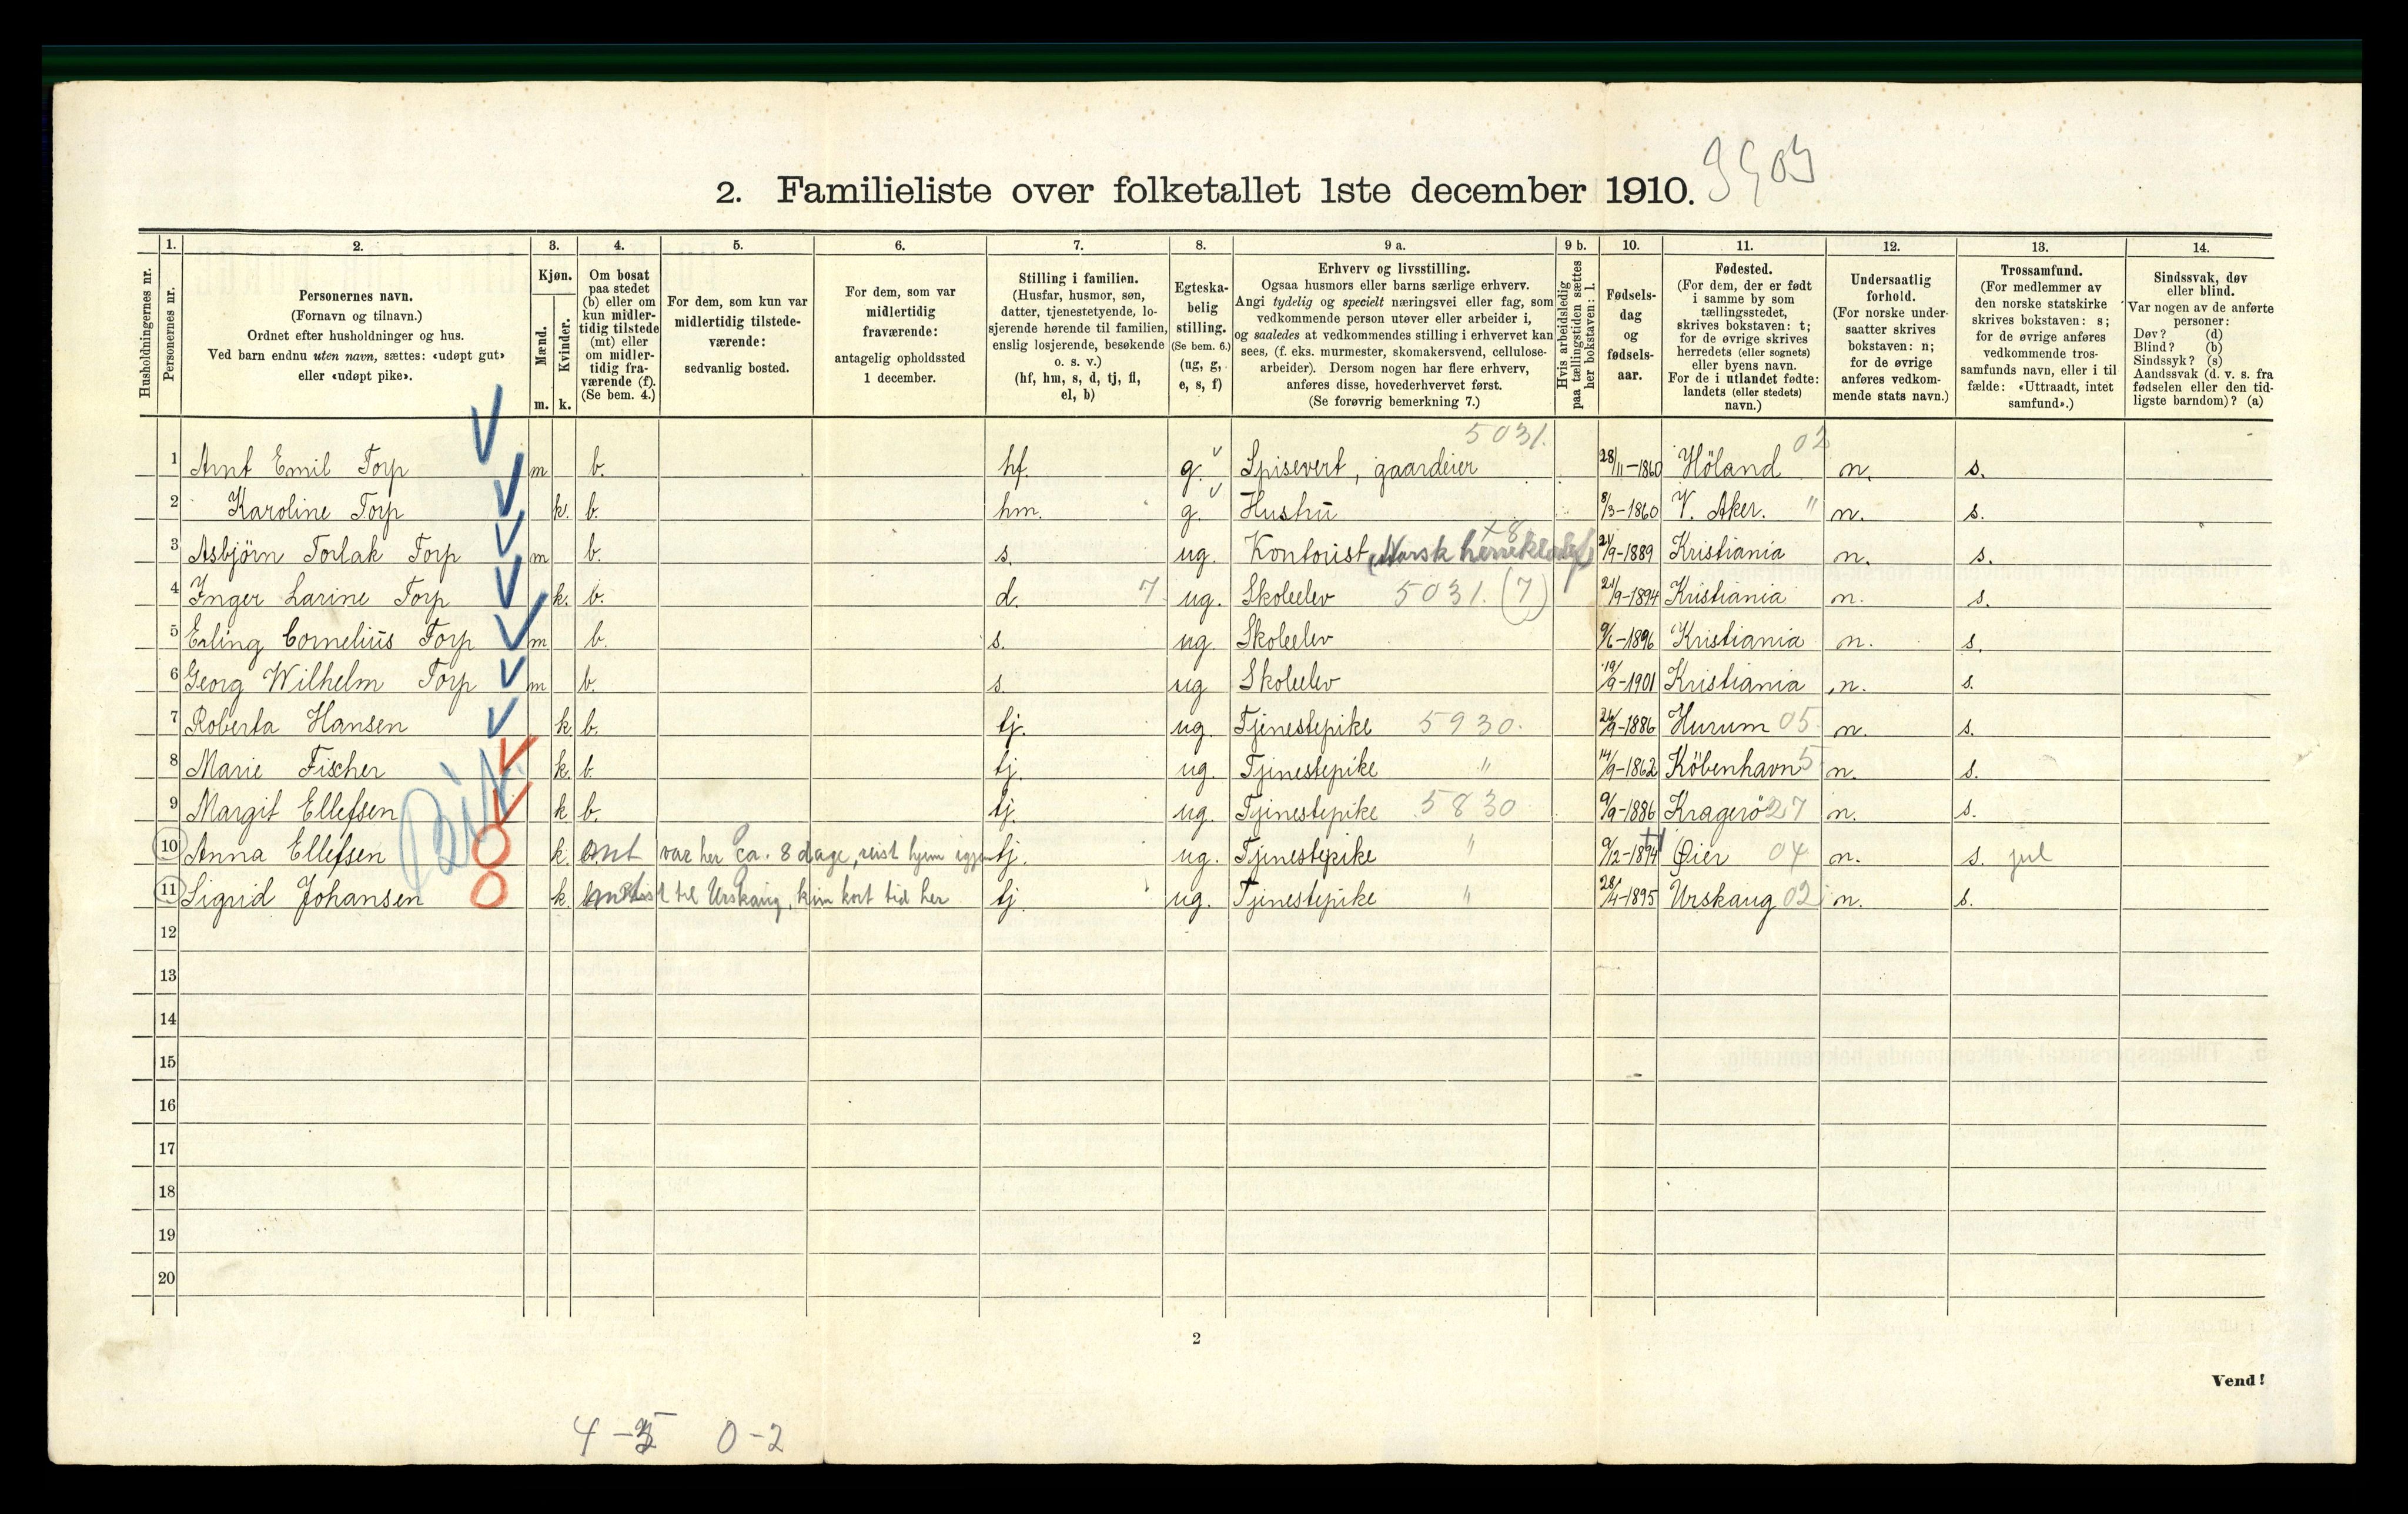 2. Familieliste over folketallet 1ste december 1910.
Husholdningernes nr.
1. Personernes nr.
2. Personernes navn. (Fornavn og tilnavn.) Ordnet efter husholdninger og hus. Ved barn endnu uten navn, sættes: «udøpt gut» eller «udøpt pike».
3. Kjøn. Mænd. m. Kvinder. k.
4. Om bosat paa stedet (b) eller om kun midlertidig tilstede (mt) eller om midlertidig fraværende (f). (Se bem. 4.)
5. For dem, som kun var midlertidig tilstedeværende: sedvanlig bosted.
6. For dem, som var midlertidig fraværende: antagelig opholdssted 1 december.
7. Stilling i familien. (Husfar, husmor, søn, datter, tjenestetyende, losjerende hørende til familien, enslig losjerende, besøkende o. s. v.) (hf, hm, s, d, tj, fl, el, b)
8. Egteskabelig stilling. (Se bem. 6.) (ug, g, e, s, f)
9 a. Erhverv og livsstilling. Ogsaa husmors eller barns særlige erhverv. Angi tydelig og specielt næringsvei eller fag, som vedkommende person utøver eller arbeider i, og saaledes at vedkommendes stilling i erhvervet kan sees, (f. eks. murmester, skomakersvend, cellulosearbeider). Dersom nogen har flere erhverv, anføres disse, hovederhvervet først. (Se forøvrig bemerkning 7.)
9 b. Hvis arbeidsledig paa tællingstiden sættes her bokstaven: l.
10. Fødselsdag og fødselsaar.
11. Fødested. (For dem, der er født i samme by som tællingsstedet, skrives bokstaven: t; for de øvrige skrives herredets (eller sognets) eller byens navn. For de i utlandet fødte: landets (eller stedets) navn.)
12. Undersaatlig forhold. (For norske undersaatter skrives bokstaven: n; for de øvrige anføres vedkommende stats navn.)
13. Trossamfund. (For medlemmer av den norske statskirke skrives bokstaven: s; for de øvrige anføres vedkommende trossamfunds navn, eller i tilfælde: «Uttraadt, intet samfund».)
14. Sindssvak, døv eller blind. Var nogen av de anførte personer: Døv? (d) Blind? (b) Sindssyk? (s) Aandssvak (d. v. s. fra fødselen eller den tidligste barndom)? (a)
1 Arnt Emil Torp m b. hf. g. Spisevert, gaardeier 5031. 28/11-1860 Höland 02 n. s.
2 Karoline Torp k. b. hm. g. Hustru 8/3-1860 V. Aker. " n. s.
3 Asbjörn Torlak Torp m b. s. ug. Kontorist, (Norsk 9-1889 Kristiania n. s.
4 Inger Larine Torp k. b. d. 7 ug. Skoleelev 5031. (7) 21/9-1894 Kristiania n. s.
5 Erling Cornelius Torp m b. s. ug. Skoleelev 9/6-1896 Kristiania n. s.
6 Georg Wilhelm Torp m b. s. ug Skoleelev 19/9-1901 Kristiania n. s.
7 Roberta Hansen k b. tj. ug. Tjenestepike 5930. 26/9-1886 Hurum 05 n. s.
8 Marie Fischer k. b. tj. ug. Tjenestepike " 14/9-1862 Köbenhavn 5 n. s.
9 Margit Ellefsen k b. tj. ug. Tjenestepike 5830 9/9-1886 Kragerö 27 n. s.
10 Anna Ellefsen k. mt var her ca. 8 dage, reist hjem igjen tj. ug. Tjenestepike " 9/12-1894 Øier 04 n. s. jul
11 Sigrid Johansen k. mt Reist til Urskaug, kun kort tid her tj ug. Tjenestepike " 28/4-1895 Urskaug 02 n. s.
12
13
14
15
16
17
18
19
20
2
Vend!
0-2